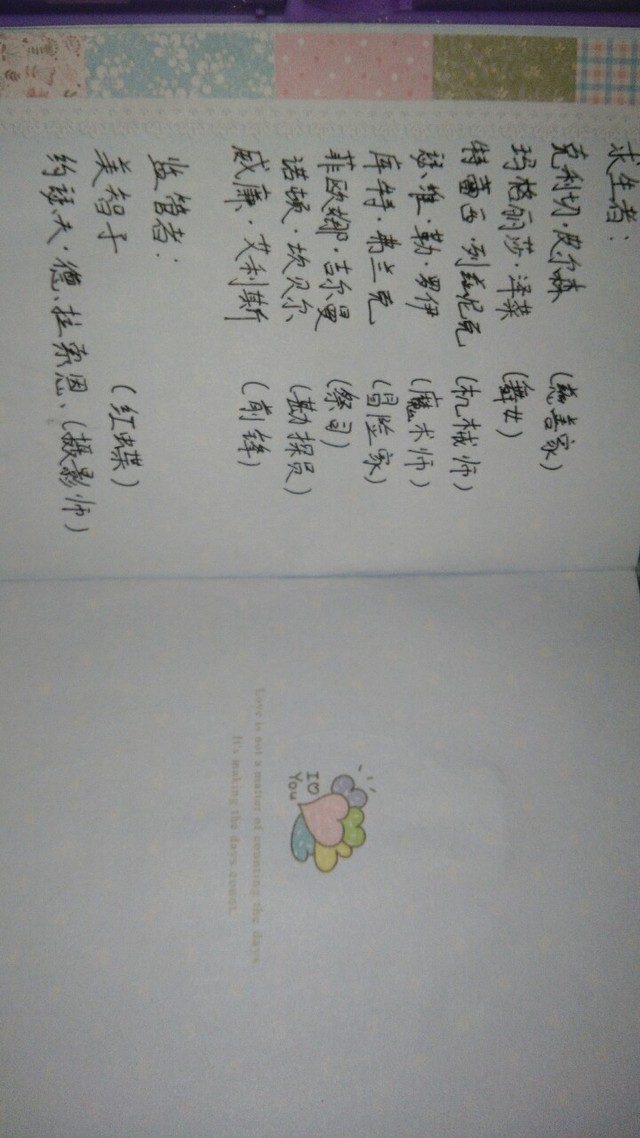 求生者：
克利切·皮尔森 （慈善家）
玛格丽莎·泽莱 （舞女）
特蕾西·列兹尼克 （机械师）
瑟维·勒·罗伊 （魔术师）
库特·弗兰克 （冒险家）
菲欧娜·吉尔曼 （祭司）
诺顿·坎贝尔 （勘探员）
威廉·艾利斯 （前锋）
监管者：
美智子 （红蝶）
约瑟夫·德拉索恩、（摄影师）
I♡
You
Love is not a matter of counting the days
It's making the days count.